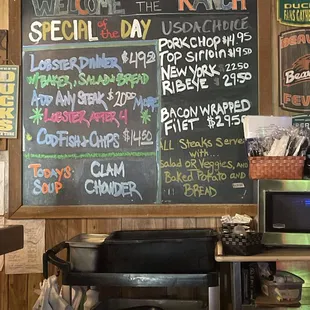 WELCOME TO THE RANCH
SPECIAL of the DAY
LOBSTER DINNER $49.95
W/ BAKER, SALAD & BREAD
ADD ANY STEAK $20.00 MORE
LOBSTER AFTER 4
COD FISH & CHIPS $14.50
TODAY'S SOUP
CLAM CHOWDER
USDA CHOICE
PORK CHOP $14.95
TOP SIRLOIN $19.50
NEW YORK 22.50
RIBEYE 29.50
BACON WRAPPED
FILET $29.50
ALL STEAKS SERVE
WITH...
SALAD OR VEGGIES,
AND BAKED POTATO
AND BREAD
DUCKS
DUCKS
FANS
CATERED
BEAVER
FEVER